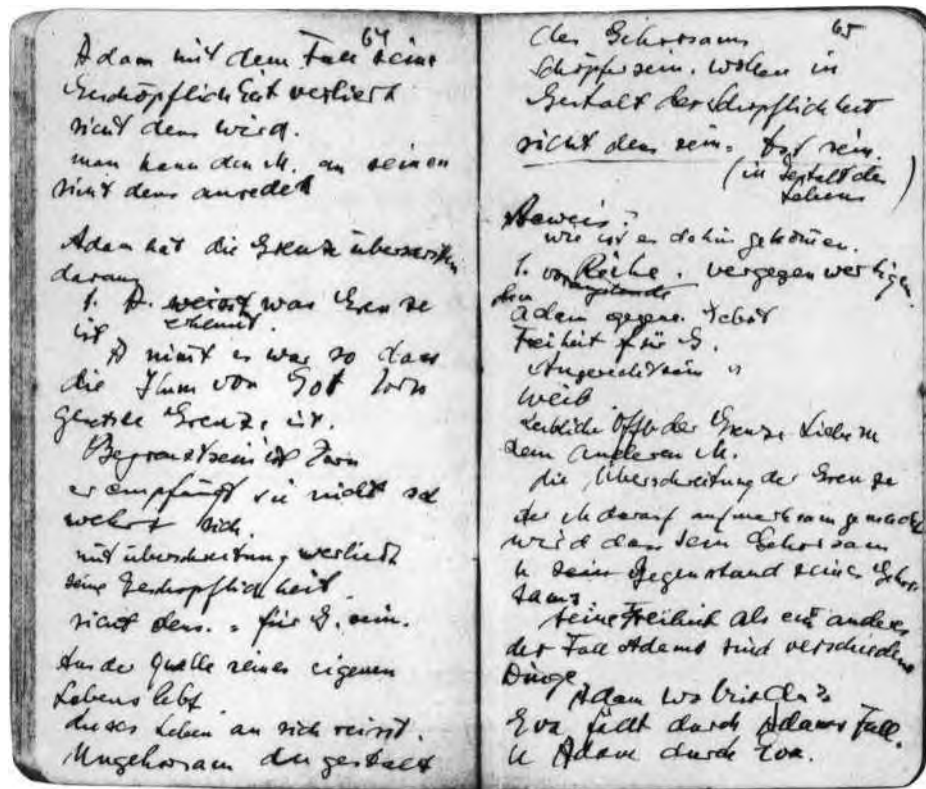 64
Adam mit dem Fall seine
Geschöpflichkeit verliert
nicht dems wird.
man kann den M. an seinen
nicht dems anredet
Adam hat die Grenze überschritten
daraus
1. A. weisst was Grenze
erkennt.
ist
A nimt es war so dass
die Ihm von Got
Grenze ist.
Begrenztsein ist Zorn
er empfängt sie nicht
wehrt sich.
mit überschreitung verliert
seine Geschöpflichkeit
nicht dems. = für G. sein.
Aus der Quelle seines eigenen
Lebens lebt
dieses Leben an sich reisst.
Ungehorsam der gestalt
65
des Gehorsams
Schöpfersein. wollen in
Gestalt der
nicht dems sein = tot sein.
(in gestalt des
Lebens)
wie ist es dahin gekommen.
1. von Reihe. vergegenwertigen.
Adam gegens.
Freiheit für G.
Weib
Leibliche Offb der Grenze Liebe zu
dem anderen M.
die Überschreitung der Grenze
der M darauf aufmerksam gemacht
wird dass sein Gehorsam
u sein Gegenstand seines Gehor-
sams
seine Freiheit als ein anderes
der Fall Adams sind verschiedene
Dinge
Adam wo bist du?
Eva fällt durch Adams Fall.
u Adam durch Eva.